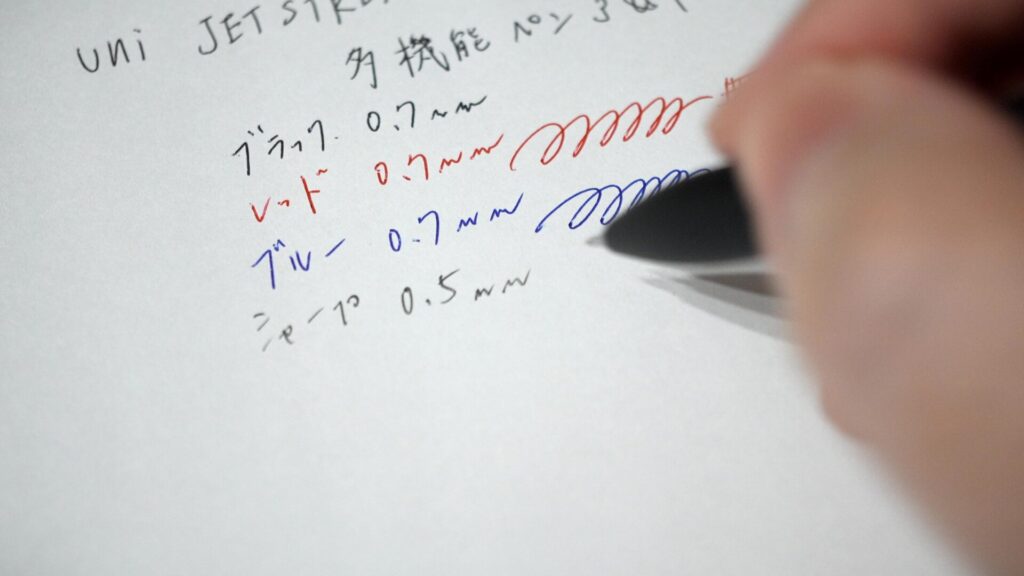 uni JETSTRE
多機能ペン 3
ブラック 0.7mm
レッド 0.7mm
ブルー 0.7mm
シャープ 0.5mm